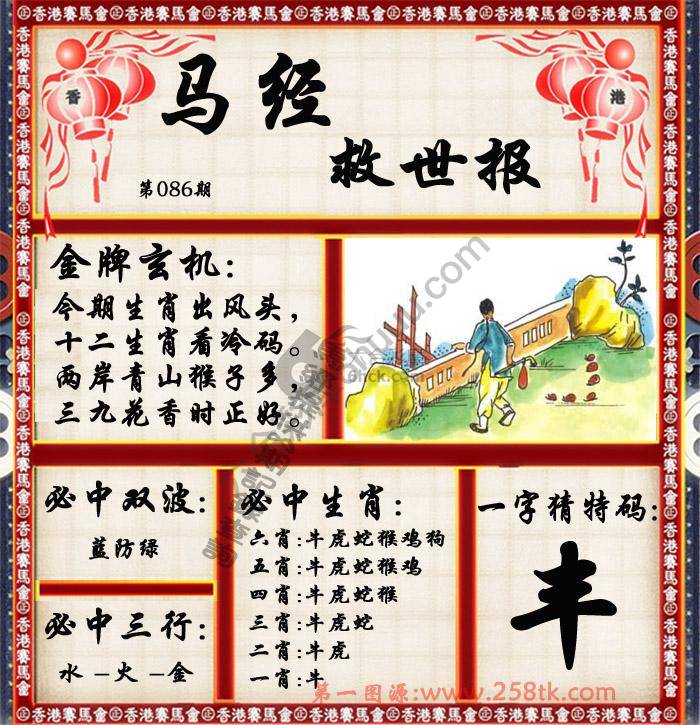 香港賽馬會
香
港
马经
救世报
第086期
金牌玄机:
今期生肖出风头,
十二生肖看冷码。
两岸青山猴子多,
三九花香时正好。
必中双波:
蓝防绿
必中三行:
水-火-金
必中生肖:
六肖:牛虎蛇猴鸡狗
五肖:牛虎蛇猴鸡
四肖:牛虎蛇猴
三肖:牛虎蛇
二肖:牛虎
一肖:牛
一字猜特码:
丰
第一图源:www.258tk.com